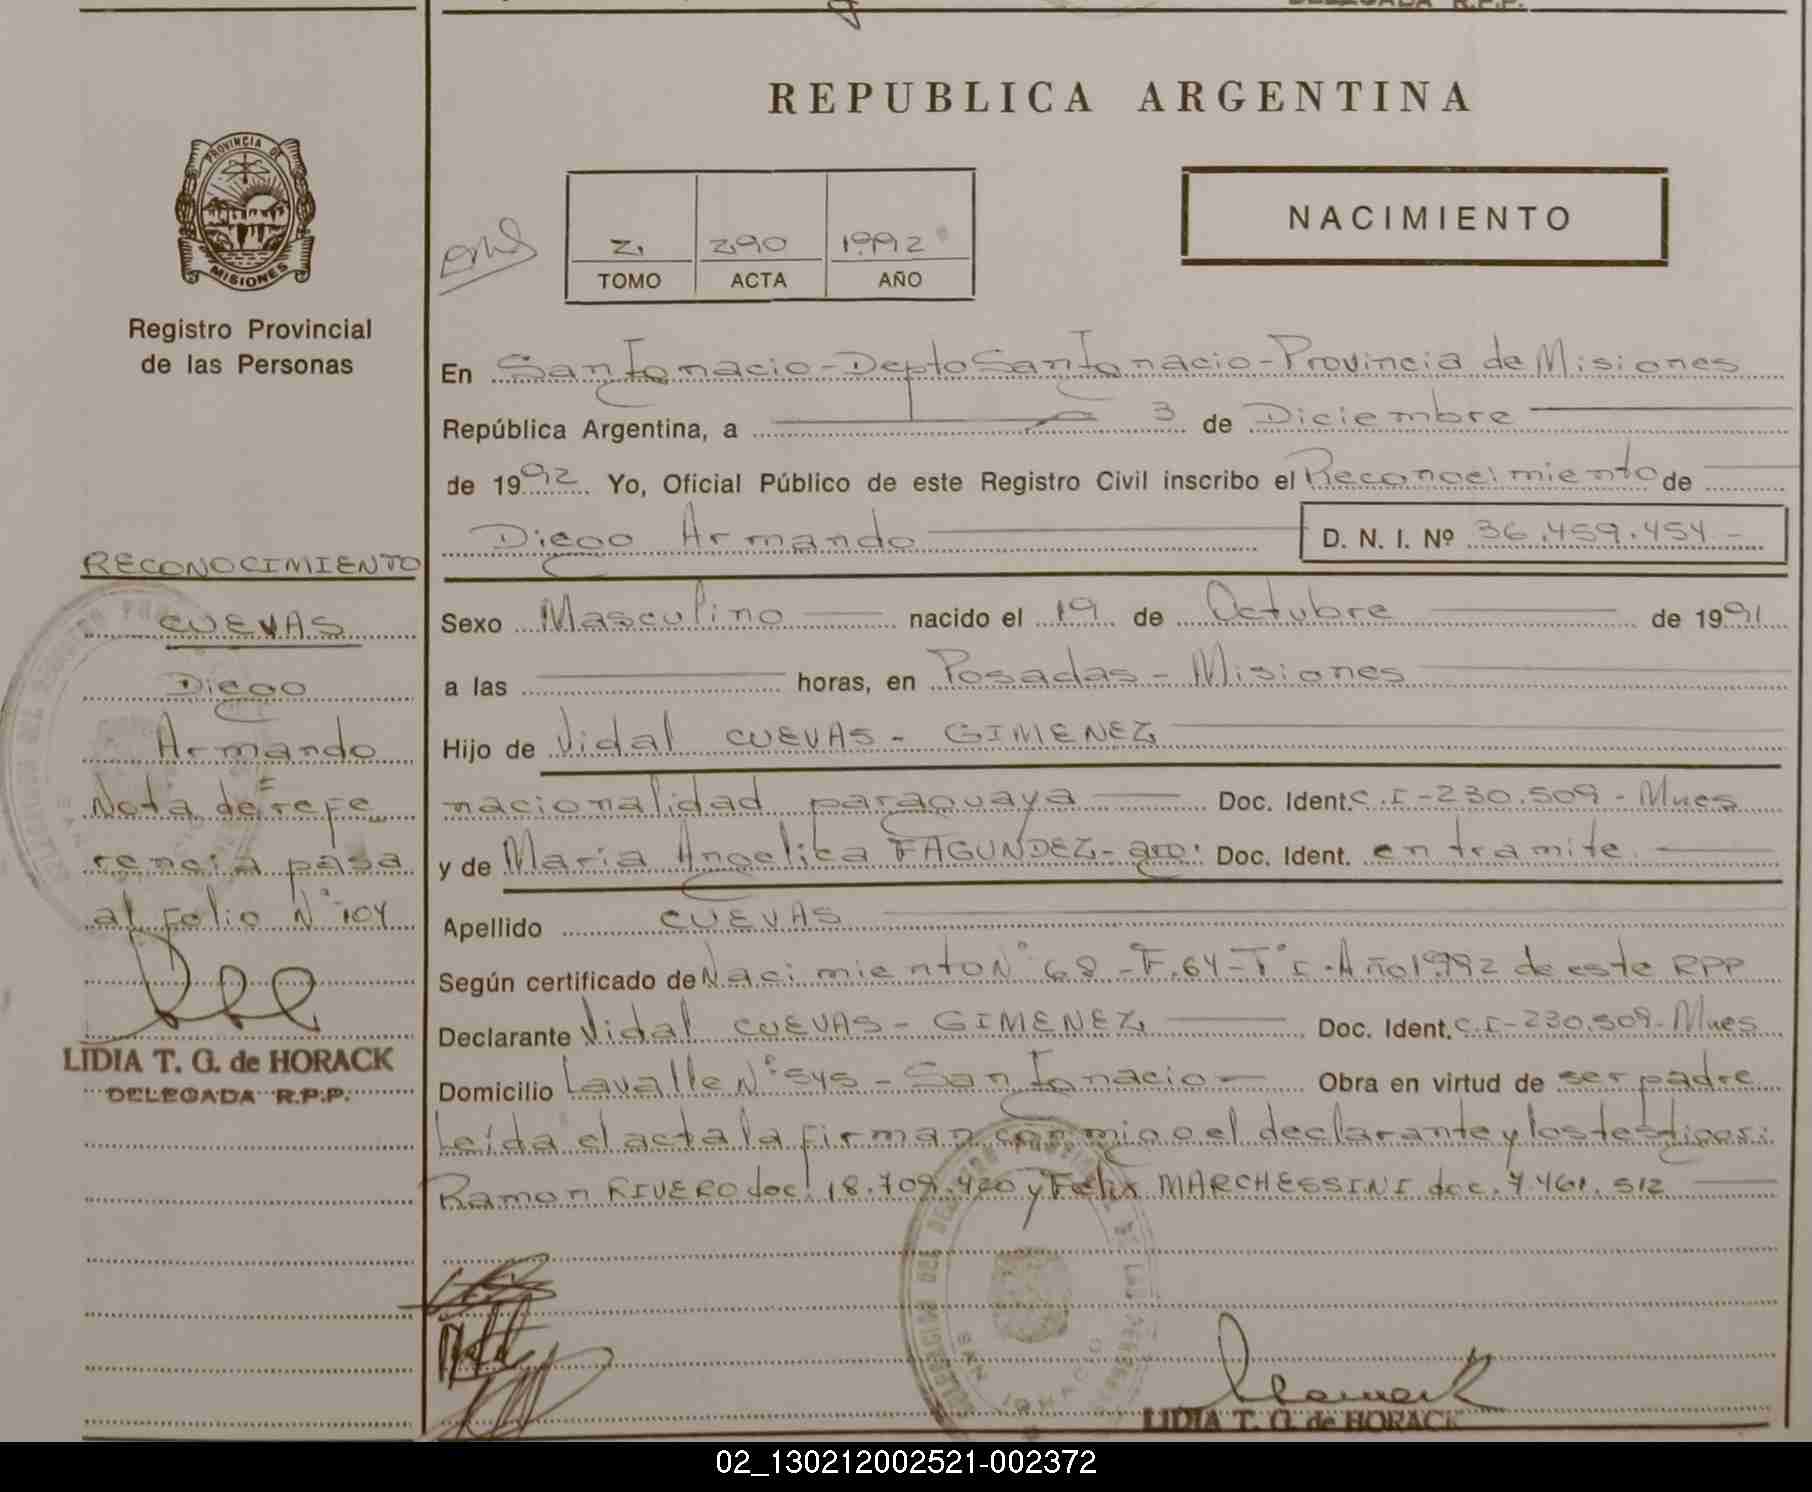 REPUBLICA ARGENTINA
PROVINCIA DE
MISIONES
Registro Provincial
de las Personas
2. 290 1992
TOMO ACTA AÑO
NACIMIENTO
En San Ignacio - Depto San Ignacio - Provincia de Misiones
República Argentina, a 3 de Diciembre
de 1992 Yo, Oficial Público de este Registro Civil inscribo el Reconocimiento de
Diego Armando D. N. I. Nº 36.459.454 -
Sexo Masculino nacido el 19 de Octubre de 1991
a las horas, en Posadas - Misiones
Hijo de Vidal CUEVAS - GIMENEZ
nacionalidad paraguaya Doc. Ident. C.I - 230.509 - Mnes
y de María Angelica FAGUNDEZ - arg. Doc. Ident. en tramite
Apellido CUEVAS
Según certificado de Nacimiento Nº 68 - F. 64 - Tº I - Año 1992 de este RPP
Declarante Vidal CUEVAS - GIMENEZ Doc. Ident. C.I - 230.509 - Mnes
Domicilio Lavalle Nº 545 - San Ignacio - Obra en virtud de ser padre
Leída el acta la firman conmigo el declarante y los testigos:
Ramon RIVERO doc. 18.709.420 y Felix MARCHESSINI doc. 7.461.512
LIDIA T. G. de HORACK
RECONOCIMIENTO
CUEVAS
Diego
Armando
Nota de refe
rencia pasa
al folio Nº 104
LIDIA T. G. de HORACK
DELEGADA R.P.P.
02_130212002521-002372